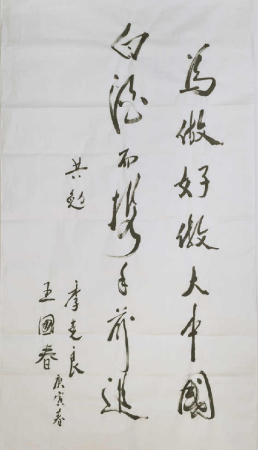 為做好做大中國
白酒而携手前進
共勉
李克良
王國春
庚寅春